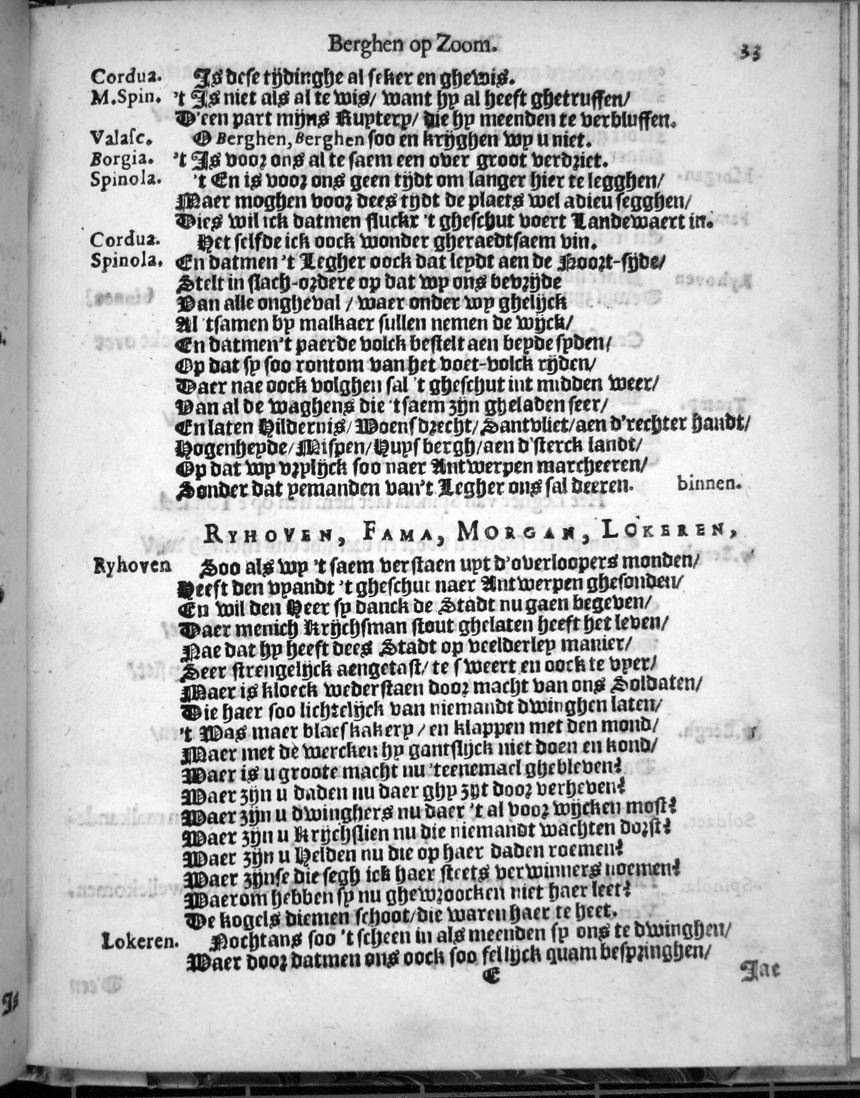 Berghen op Zoom. 33
Cordua. Is dese tijdinghe al seker en ghewis.
M.Spin. 't Is niet als al te wis/ want hy al heeft ghetruffen/
D'een part mijns Ruytery/ die hy meenden te verbluffen.
Valasc. O Berghen, Berghen soo en krijghen wy u niet.
Borgia. 't Is voor ons al te saem een over groot verdriet.
Spinola. 't En is voor ons geen tijdt om langer hier te legghen/
Maer moghen voor dees tijdt de plaets wel adieu segghen/
Dies wil ick datmen fluckr 't gheschut voert Landewaert in.
Cordua. Het selfde ick oock wonder gheraedtsaem vin.
Spinola. En datmen 't Legher oock dat leydt aen de Noort-sijde/
Stelt in slach-ordere op dat wy ons bevrijde
Van alle ongheval / waer onder wy ghelijck
Al 'tsamen by malkaer sullen nemen de wijck/
En datmen't paerde volck bestelt aen beyde syden/
Op dat sy soo rontom van het voet-volck rijden/
Daer nae oock volghen sal 't gheschut int midden weer/
Van al de waghens die 'tsaem zijn gheladen seer/
En laten Hildernis/ Woensdrecht/ Santvliet/ aen d'rechter handt/
Hogenheyde/ Nispen/ Huysbergh/ aen d'sterck landt/
Op dat wy vrylijck soo naer Antwerpen marcheeren/
Sonder dat yemanden van't Legher ons sal deeren. binnen.
RYHOVEN, FAMA, MORGAN, LOKEREN,
Ryhoven Soo als wy 't saem verstaen uyt d'overloopers monden/
Heeft den vyandt 't gheschut naer Antwerpen ghesonden/
En wil den Heer sy danck de Stadt nu gaen begeven/
Daer menich Krijchsman stout ghelaten heeft het leven/
Nae dat hy heeft dees Stadt op veelderley manier/
Seer strengelijck aengetast/ te sweert en oock te vyer/
Maer is kloeck wederstaen door macht van ons Soldaten/
Die haer soo lichtelijck van niemandt dwinghen laten/
't Was maer blaeskakery / en klappen met den mond/
Maer met de wercken hy gantslijck niet doen en kond/
Waer is u groote macht nu 'teenemael ghebleven?
Waer zijn u daden nu daer ghy zyt door verheven?
Waer zijn u dwinghers nu daer 't al voor wijcken most?
Waer zijn u Krijchslien nu die niemandt wachten dorst?
Waer zijn u Helden nu die op haer daden roemen?
Waer zijnse die segh ick haer steets verwinners noemen?
Waerom hebben sy nu ghewroocken niet haer leet?
De kogels diemen schoot/ die waren haer te heet.
Lokeren. Nochtans soo 't scheen in als meenden sy ons te dwinghen/
Waer door datmen ons oock soo fellijck quam bespringhen/
E Jae